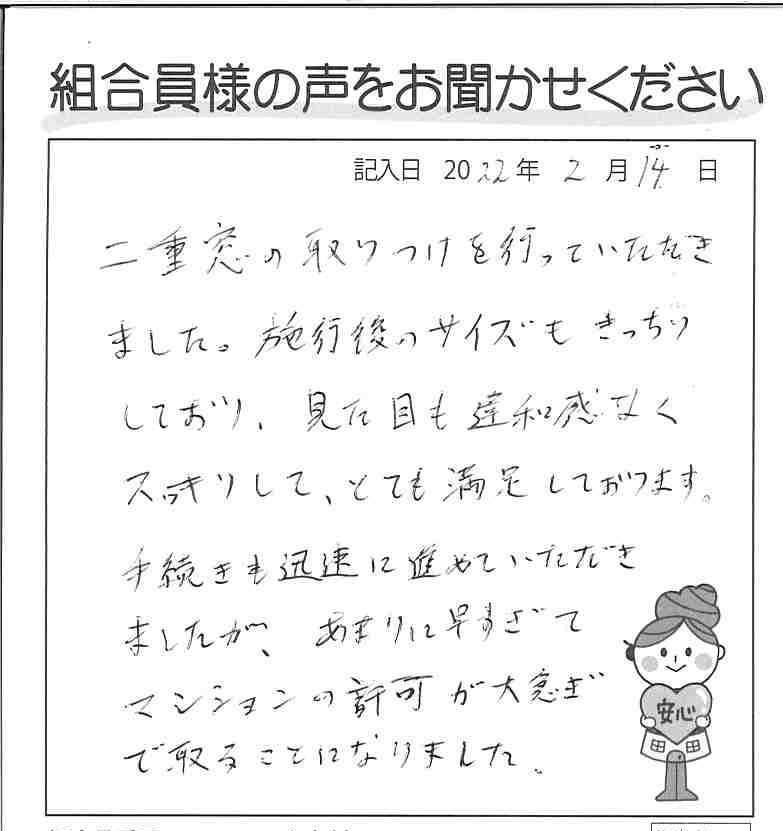 組合員様の声をお聞かせください
記入日 2022年 2月14日
二重窓の取りつけを行っていただき
ました。施行後のサイズもきっちり
しており、見た目も違和感なく
スッキリして、とても満足しております。
手続きも迅速に進めていただき
ましたが、あまりに早すぎて
マンションの許可が大急ぎ
で取ることになりました。
安心